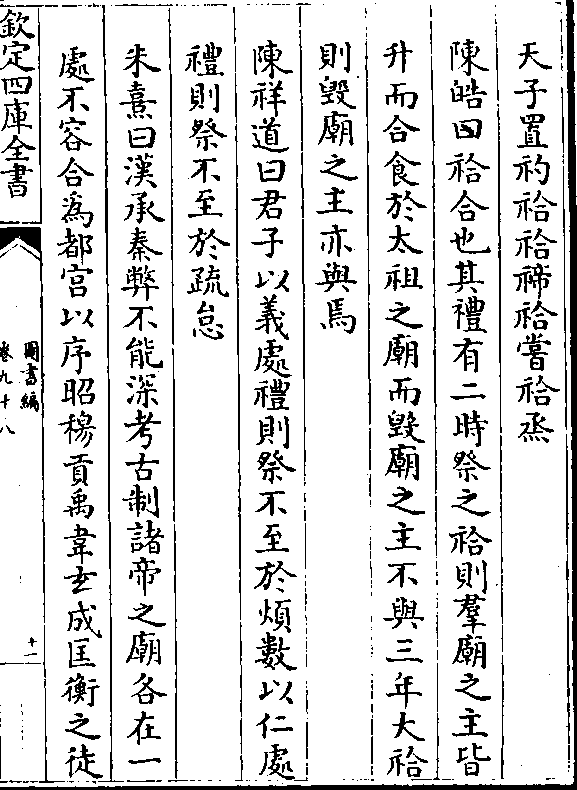 天子置礿祫祫禘祫嘗祫烝
陳皓曰祫合也其禮有二時祭之祫則羣廟之主皆
升而合食於太祖之廟而毀廟之主不與三年大祫
則毀廟之主亦與焉
陳祥道曰君子以義處禮則祭不至於煩數以仁處
禮則祭不至於疏怠
朱熹曰漢承秦弊不能深考古制諸帝之廟各在一
處不容合為都宮以序昭穆貢禹韋玄成匡衡之徒
欽定四庫全書
圖書編
卷九十八
十一